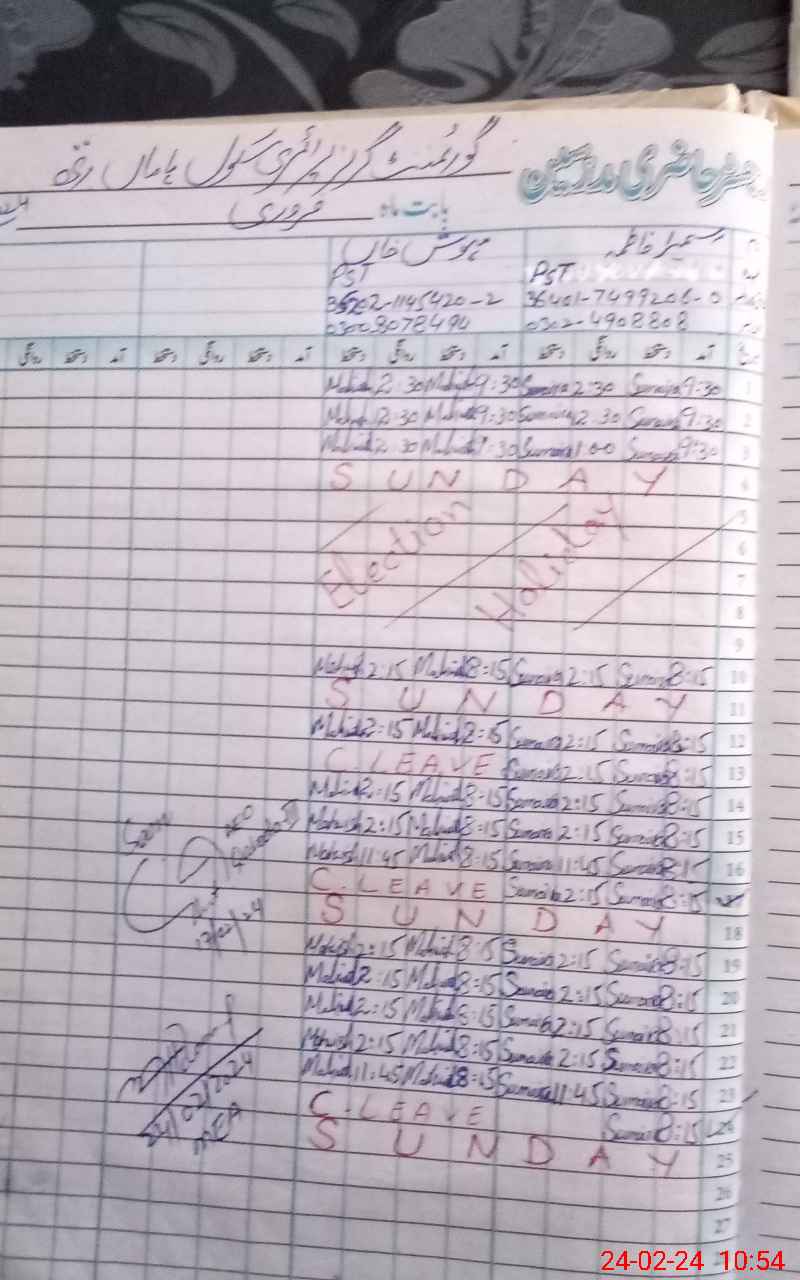 گورنمنٹ گرلز پرائمری سکول
رجسٹر حاضری مدرسین
بابت ماہ فروری
سمیرا فاطمہ مہوش خاں
PST PST
36401-7499206-0 36202-1145420-2
0302-4908808 03008078494
1 Sumaira 9:30 Sumaira 2:30 Mahwish 9:30 Mahwish 2:30
2 Sumaira 9:30 Sumaira 2:30 Mahwish 9:30 Mahwish 2:30
3 Sumaira 9:30 Sumaira 1:00 Mahwish 2:30
4 SUNDAY
5
6 Election
7 Holiday
8
9
10 Sumaira 8:15 Sumaira 2:15 Mahwish 8:15 Mahwish 2:15
11 SUNDAY
12 Sumaira 8:15 Sumaira 2:15 Mahwish 8:15 Mahwish 2:15
13 Sumaira 8:15 Sumaira 2:15 C.LEAVE
14 Sumaira 8:15 Sumaira 2:15 Mahwish 8:15 Mahwish 2:15
15 Sumaira 8:15 Sumaira 2:15 Mahwish 8:15 Mahwish 2:15
16 Sumaira 8:15 Sumaira 11:45 Mahwish 8:15 Mahwish 11:45
Sumaira 8:15 Sumaira 2:15 C.LEAVE
17/02/24
18 SUNDAY
19 Sumaira 8:15 Sumaira 2:15 Mahwish 8:15 Mahwish 2:15
20 Sumaira 8:15 Sumaira 2:15 Mahwish 8:15 Mahwish 2:15
21 Sumaira 8:15 Sumaira 2:15 Mahwish 8:15 Mahwish 2:15
22 Sumaira 8:15 Sumaira 2:15 Mahwish 8:15 Mahwish 2:15
23 Sumaira 8:15 Sumaira 11:45 Mahwish 8:15 Mahwish 11:45
24 Sumaira 8:15 C.LEAVE
24/02/2024
MEA
25 SUNDAY
26
27
24-02-24 10:54